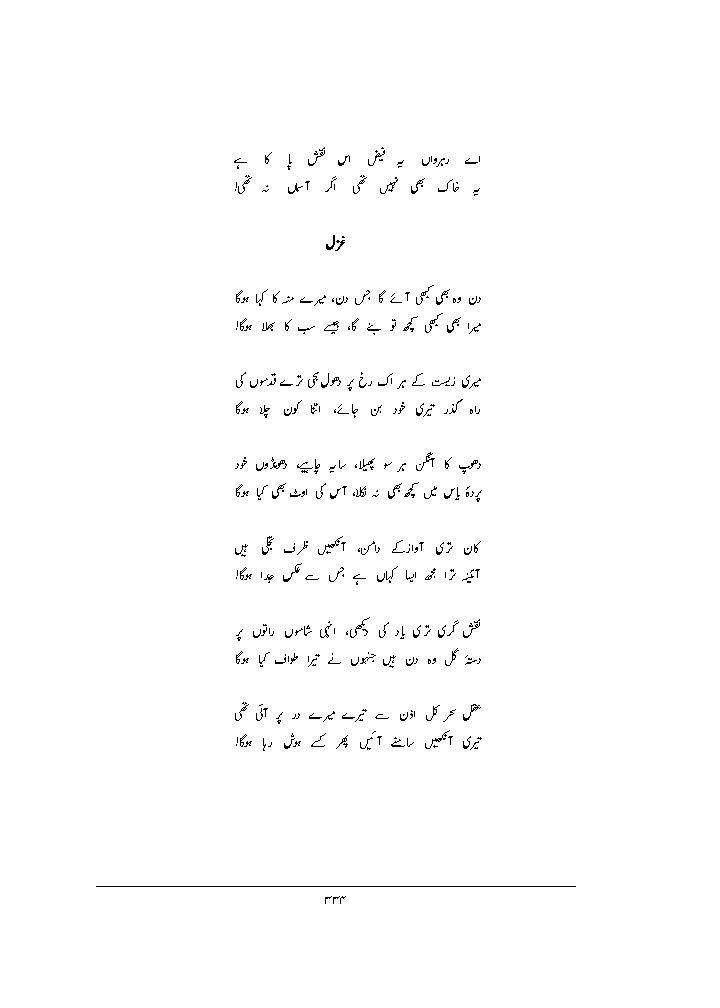 اے رہرواں یہ فیض اس نقش پا کا ہے
یہ خاک بھی نہیں تھی اگر آسماں نہ تھی!
غزل
دن وہ بھی کبھی آئے گا جس دن، میرے منہ کا کہا ہوگا
میرا بھی کبھی کچھ تو بنے گا، جیسے سب کا بھلا ہوگا!
میری زیست کے ہر اک رخ پر دھول جمی ترے قدموں کی
راہ گذر تیری خود بن جائے، اتنا کون چلا ہوگا
دھوپ کا آنگن ہر سو پھیلا، سایہ چاہیے، ڈھونڈوں خود
پردۂ یاس میں کچھ بھی نہ نکلا، آس کی اوٹ بھی کیا ہوگا
کان تری آواز کے دامن، آنکھیں ظرف تجلی ہیں
آئینہ ترا مجھ ایسا کہاں ہے جس سے عکس جدا ہوگا!
نقش گری تری یاد کی دیکھی، انہی شاموں راتوں پر
دستۂ گل وہ دن ہیں جنہوں نے تیرا طواف کیا ہوگا
عقل سحر کل اذن سے تیرے میرے در پر آئی تھی
تیری آنکھیں سامنے آئیں پھر کسے ہوش رہا ہوگا!
۳۳۴